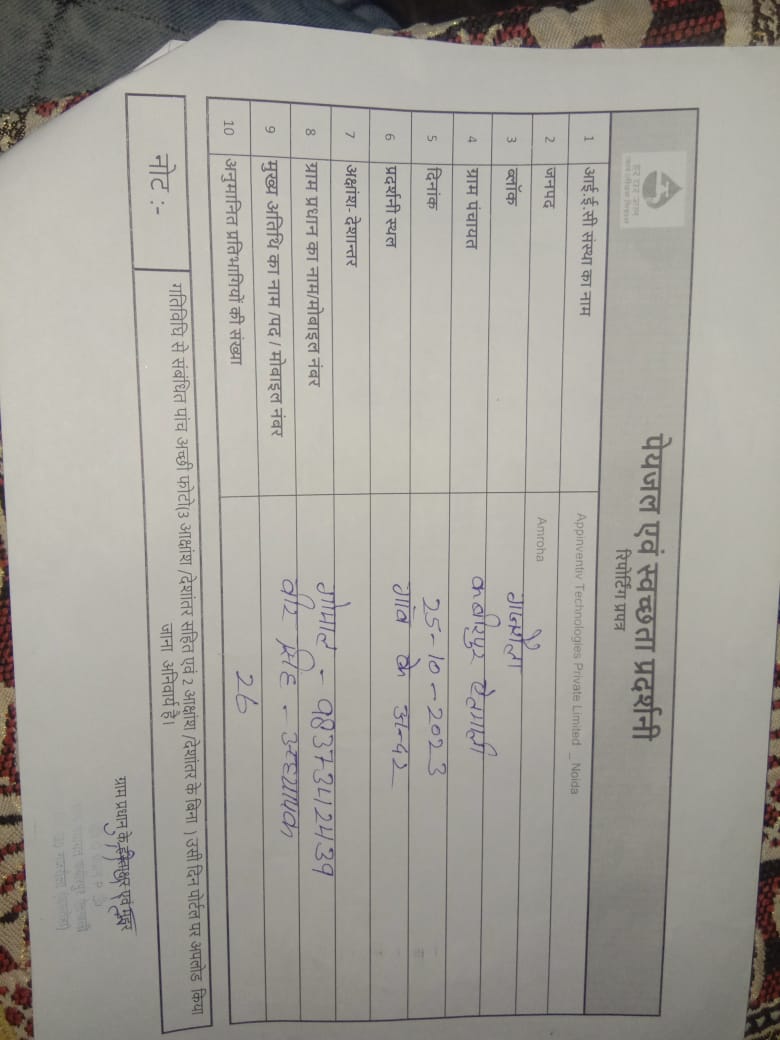 पेयजल एवं स्वच्छता प्रदर्शनी
रिपोर्टिंग प्रपत्र
1 आई.ई.सी संस्था का नाम Appinventiv Technologies Private Limited _ Noida
2 जनपद Amroha
3 ब्लॉक गजरौला
4 ग्राम पंचायत कबीरपुर
5 दिनांक 25-10-2023
6 प्रदर्शनी स्थल गांव के अन्दर
7 अक्षांश-देशान्तर
8 ग्राम प्रधान का नाम/मोबाइल नंबर 9837342439
9 मुख्य अतिथि का नाम /पद / मोबाइल नंबर वीर सिंह - अध्यापक
10 अनुमानित प्रतिभागियों की संख्या 26
नोट :- गतिविधि से संबंधित पांच अच्छी फोटो(3 आक्षांश /देशांतर सहित एवं 2 आक्षांश /देशांतर के बिना ) उसी दिन पोर्टल पर अपलोड किया
जाना अनिवार्य है।
ग्राम प्रधान के हस्ताक्षर एवं मुहर